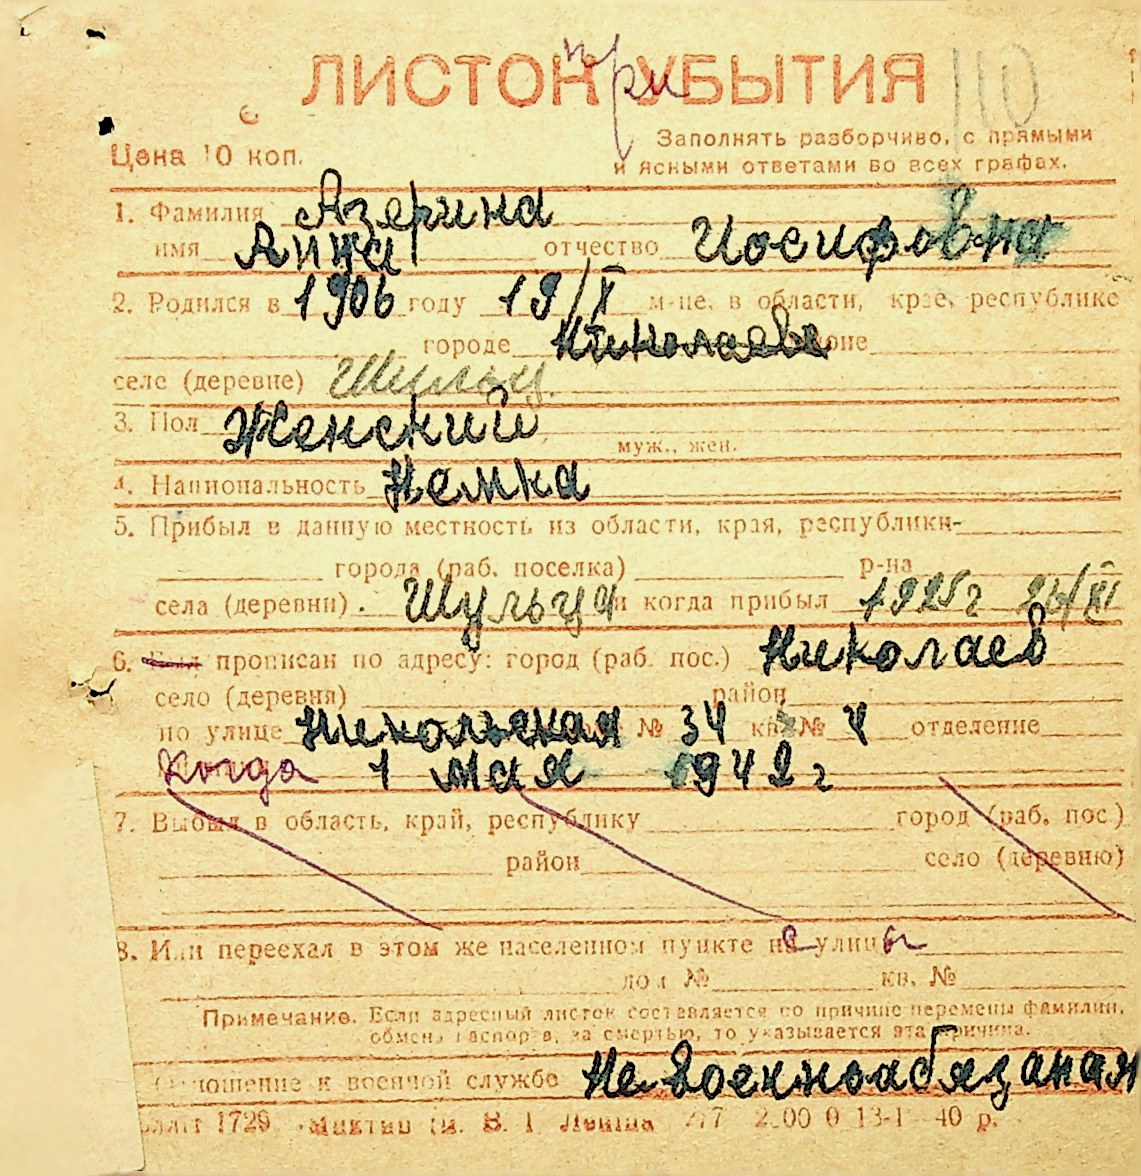 ЛИСТОК при УБЫТИЯ 110
Цена 10 коп.
Заполнять разборчиво, с прямыми
и ясными ответами во всех графах.
1. Фамилия Азерина
имя Анна отчество Иосифовна
2. Родился в 1906 году 19/X м-це, в области, крае, республике
городе Николаеве
селе (деревне) Шульц
3. Пол Женский
муж., жен.
4. Национальность Немка
5. Прибыл в данную местность из области, края, республики
города (раб. поселка) р-на
села (деревни) Шульца и когда прибыл 1925г 26/XI
6. Был прописан по адресу: город (раб. пос.) Николаев
село (деревня) район
по улице Никольская № 34 кв. № 4 отделение
Когда 1 мая 1942 г
7. Выбыл в область, край, республику город (раб. пос.)
район село (деревню)
8. Или переехал в этом же населенном пункте с улицы
дом № кв. №
Примечание. Если адресный листок составляется по причине перемены фамилии,
обмена паспорта, за смертью, то указывается эта причина.
Отношение к военной службе Не военноабязаная
1729 В. И. Ленина 40 р.